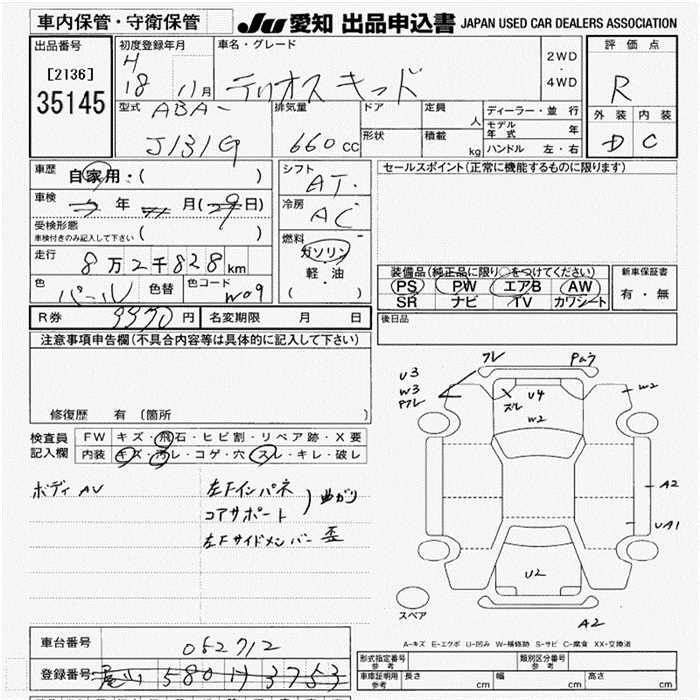 車内保管・守衛保管
JU 愛知 出品申込書 JAPAN USED CAR DEALERS ASSOCIATION
出品番号
[2136]
35145
初度登録年月
H
18 11月
車名・グレード
テリオスキッド
2WD
・
4WD
評価点
R
外装 内装
D C
型式 ABA-
J131G
排気量
660cc
ドア
形状
定員
人
積載
kg
ディーラー・並行
モデル年式 年
ハンドル 左・右
車歴
自家用・( )
車検
年 月(29日)
受検形態
車検付きのみ記入して下さい ( )
走行
8万2千828km
色
パール
色替
色コード
W09
シフト
AT
冷房
AC
燃料
ガソリン
軽・油
( ・ )
セールスポイント(正常に機能するものに限ります)
装備品(純正品に限り○をつけてください)
PS PW エアB AW
SR ナビ TV カワシート
新車保証書
有・無
R券 9970円 名変期限 月 日
後日品
注意事項申告欄(不具合内容等は具体的に記入して下さい)
修復歴 有 〔箇所
検査員
記入欄
FW キズ・飛石・ヒビ割・リペア跡・X要
内装 キズ・汚レ・コゲ・穴・スレ・キレ・破レ
ボディAV
左Fインパネ
コアサポート
曲がり
左Fサイドメンバー 歪
U3
W3
Pズレ
ズレ
U4
W2
W2
A2
UA1
U2
A2
スペア
A-キズ E-エクボ U-凹み W-補修跡 S-サビ C-腐食 XX-交換済
車台番号 052712
登録番号 580 3753
形式指定番号
参考
類別区分番号
参考
車庫証明用
参考
長さ cm 幅 cm 高さ cm